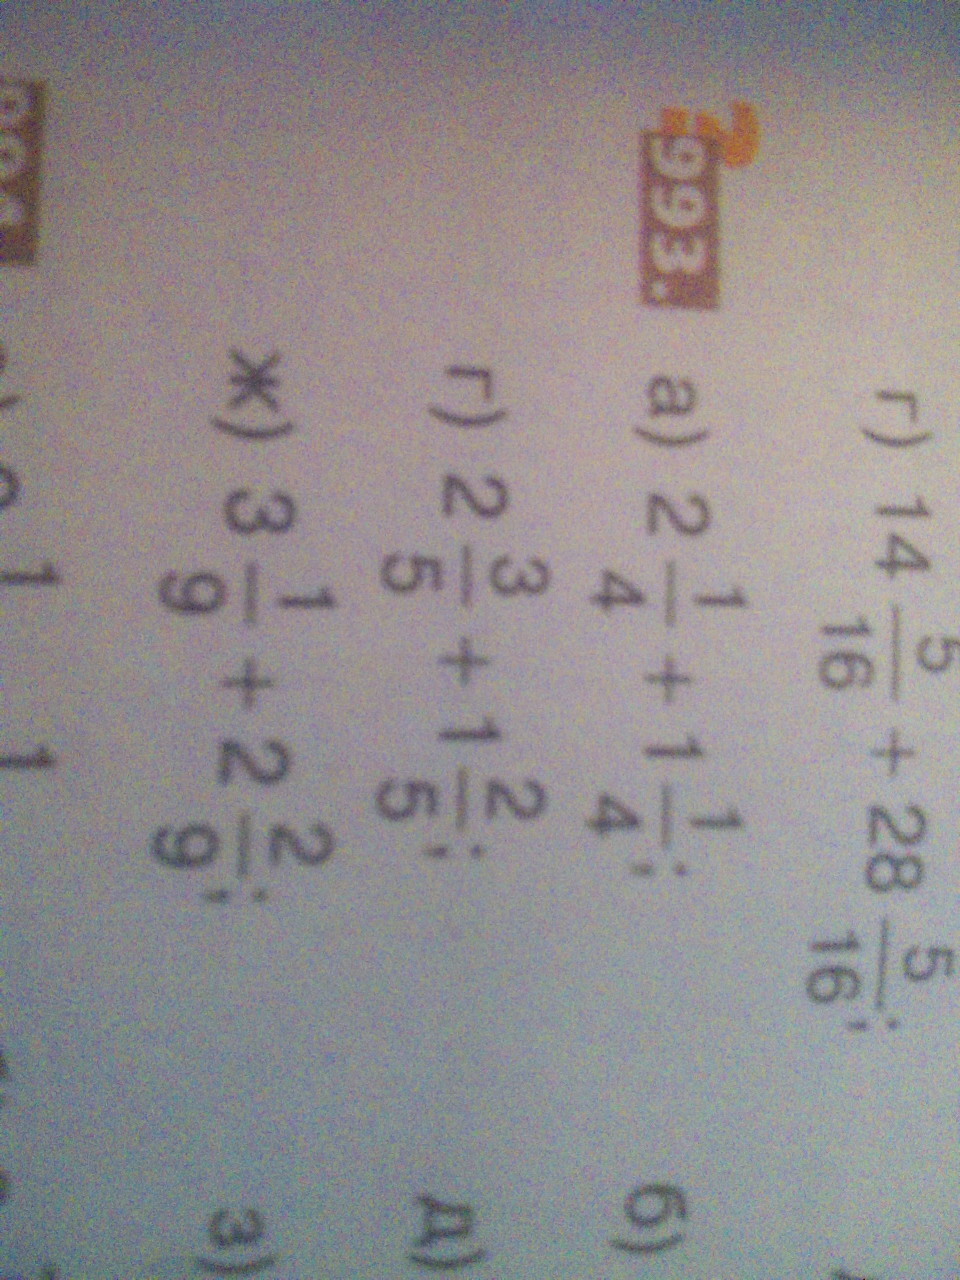 г) 14 5/16 + 28 5/16;
993. а) 2 1/4 + 1 1/4; б)
г) 2 3/5 + 1 2/5; д)
ж) 3 1/9 + 2 2/9; з)
1 1